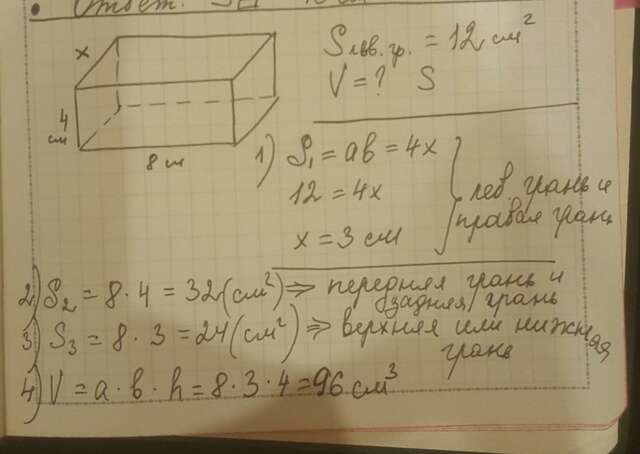 • Ответ:
x
4
см
8 см
S лев. гр. = 12 см²
V = ? S
1) S₁ = ab = 4x
12 = 4x
x = 3 см
лев. грань и
правая гран
2) S₂ = 8 · 4 = 32 (см²) ⇒ передняя грань и
задняя грань
3) S₃ = 8 · 3 = 24 (см²) ⇒ верхняя или нижняя
грань
4) V = a · b · h = 8 · 3 · 4 = 96 см³